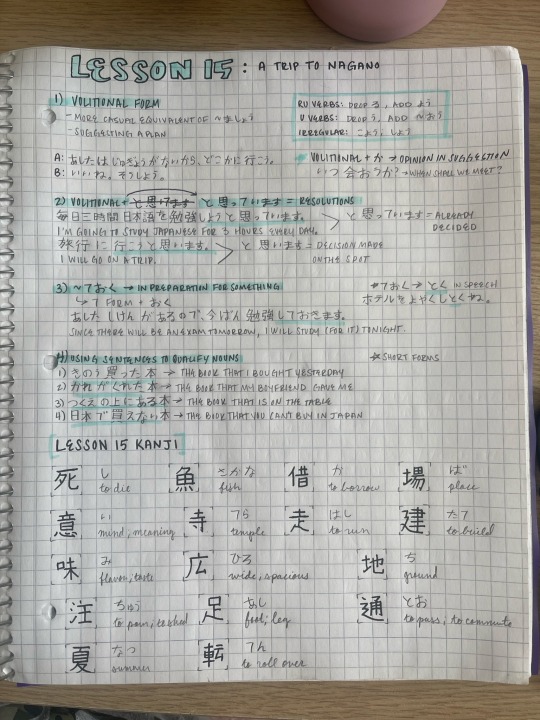 LESSON 15: A TRIP TO NAGANO
1) VOLITIONAL FORM
- MORE CASUAL EQUIVALENT OF ~ましょう
- SUGGESTING A PLAN
RU VERBS: DROP る, ADD よう
U VERBS: DROP う, ADD ~おう
IRREGULAR: こよう, しよう
A: あしたはじゅぎょうがないから、どこかに行こう。
B: いいね。そうしよう。
* VOLITIONAL + か → OPINION IN SUGGESTION
いつ会おうか? → WHEN SHALL WE MEET?
2) VOLITIONAL + と思います と思っています = RESOLUTIONS
毎日三時間日本語を勉強しようと思っています。
I'M GOING TO STUDY JAPANESE FOR 3 HOURS EVERY DAY.
と思っています = ALREADY DECIDED
旅行に行こうと思います。
I WILL GO ON A TRIP.
と思います = DECISION MADE ON THE SPOT
3) ~ておく → IN PREPARATION FOR SOMETHING
↳ て FORM + おく
あしたしけんがあるので、今ばん勉強しておきます。
SINCE THERE WILL BE AN EXAM TOMORROW, I WILL STUDY (FOR IT) TONIGHT.
*ておく → とく IN SPEECH
ホテルをよやくしとくね。
4) USING SENTENCES TO QUALIFY NOUNS
*SHORT FORMS
1) きのう買った本 → THE BOOK THAT I BOUGHT YESTERDAY
2) かれがくれた本 → THE BOOK THAT MY BOYFRIEND GAVE ME
3) つくえの上にある本 → THE BOOK THAT IS ON THE TABLE
4) 日本で買えない本 → THE BOOK THAT YOU CAN'T BUY IN JAPAN
LESSON 15 KANJI
死 し to die
魚 さかな fish
借 か to borrow
場 ば place
意 い mind, meaning
寺 てら temple
走 はし to run
建 たて to build
味 み flavor, taste
広 ひろ wide, spacious
地 ち ground
注 ちゅう to pour, to shed
足 あし foot; leg
通 とお to pass; to commute
夏 なつ summer
転 てん to roll over